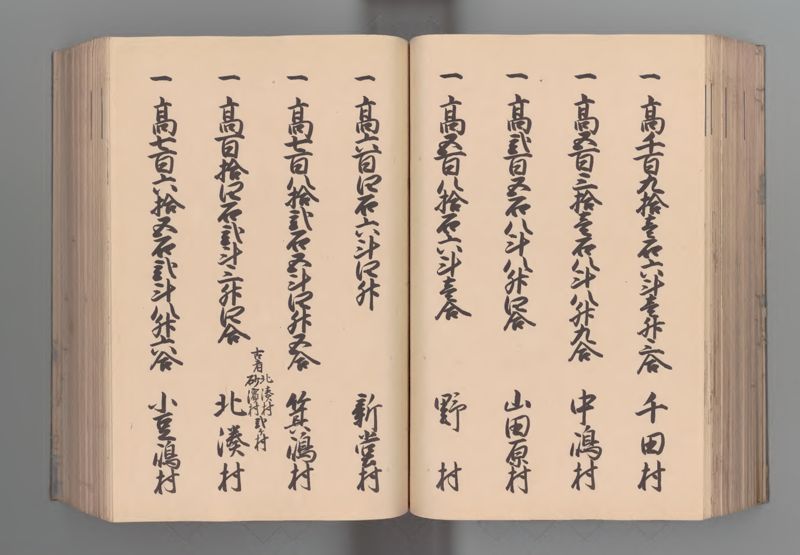 一 高千百九拾壱石六斗壱升三合 千田村
一 高五百三拾壱石八斗八升九合 中嶋村
一 高弐百五石八斗八升四合 山田原村
一 高五百八拾石六斗壱合 野村
一 高六百四石六斗四升 新堂村
一 高七百八拾弐石五斗四升五合 箕嶋村
古者 北湊村 砂濱村 弐ヶ村
一 高百拾四石弐斗三升四合 北湊村
一 高七百六拾五石弐斗八升六合 小豆嶋村